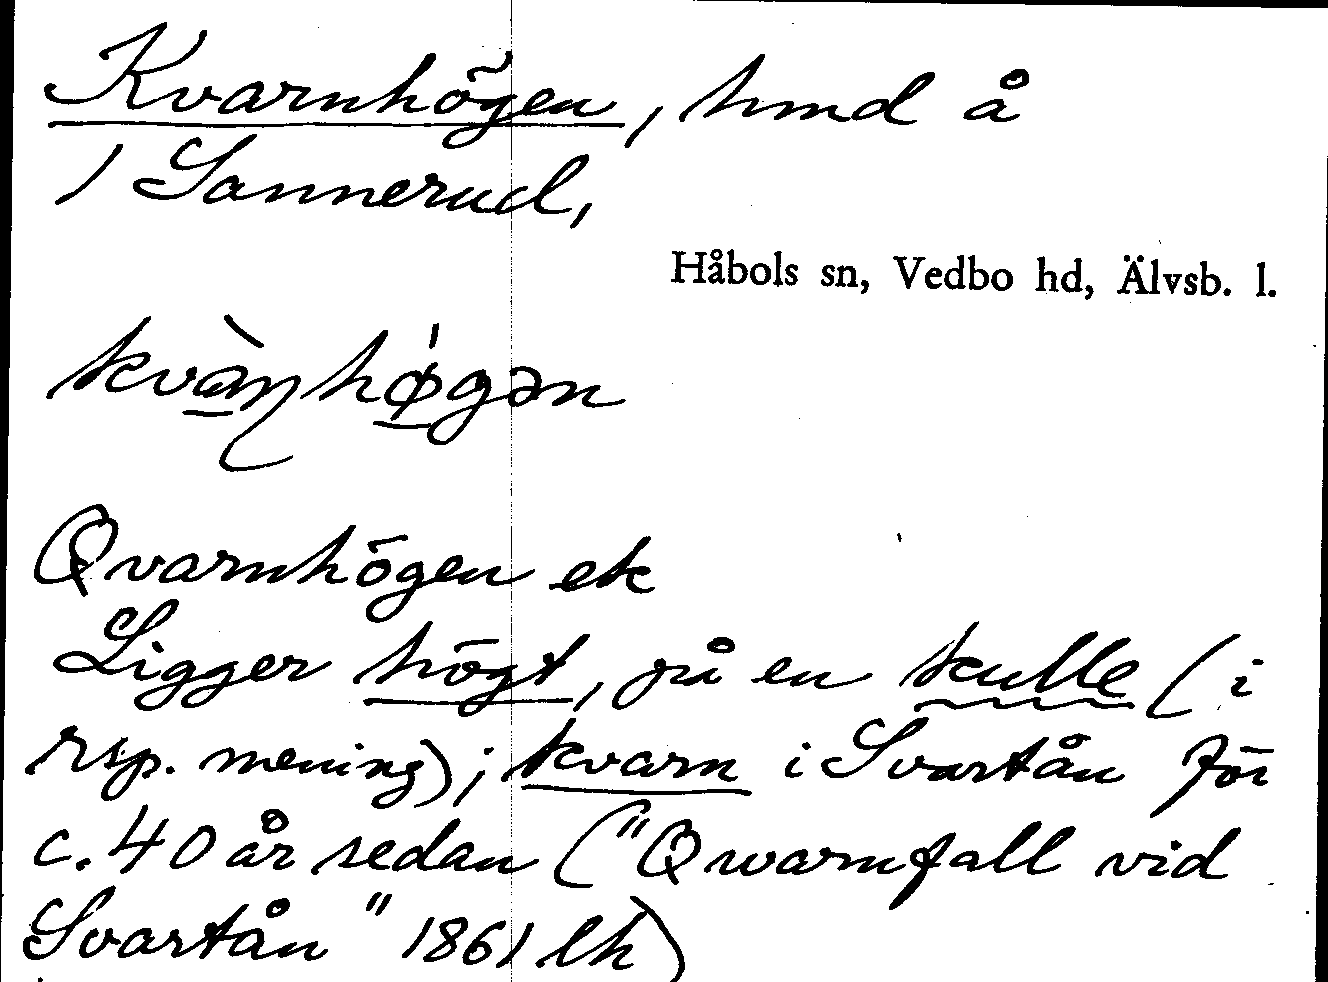 Kvarnhögen, hmd å
1 Sannerud,
Håbols sn, Vedbo hd, Älvsb. l.
kvàɳhø̀gən
Qvarnhögen ek
Ligger högt, på en kulle (i
rsp. mening); kvarn i Svartån för
c. 40 år sedan ("Qwarnfall vid
Svartån" 1861 lh)